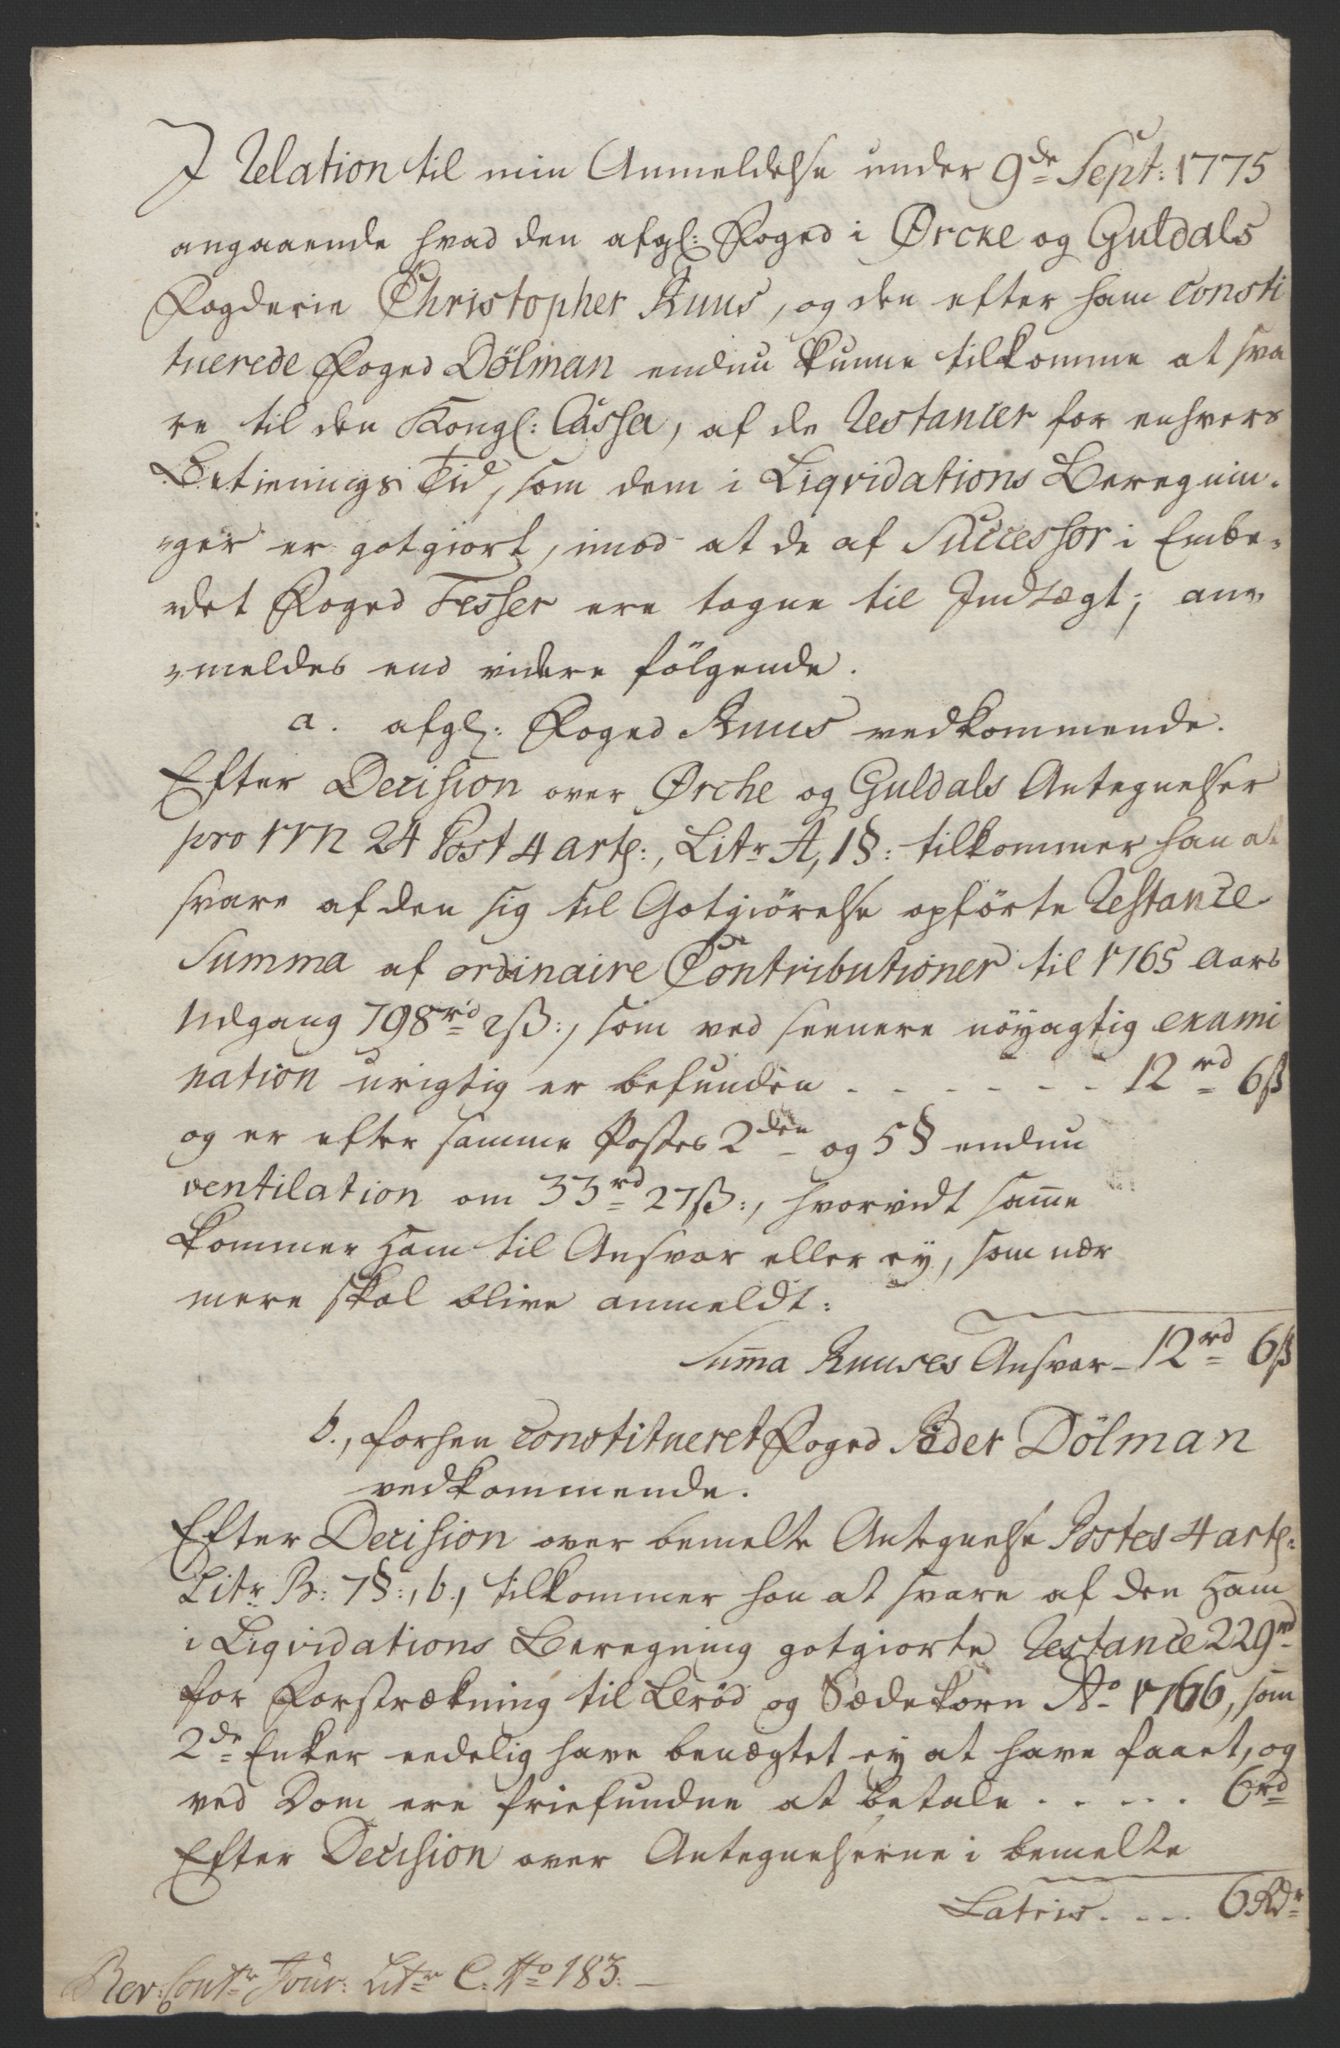 I Relation til min Anmeldelse under 9de Sept: 1775
angaaende hvad den afgl: Foged i Ørcke og Guldals
Fogderie Christopher Ruus, og den efter ham consti
tuerede Foged Dölman endnu kunne tilkomme at sva
re til den Kongl: Cassa, af de Restancer for enhvers
Betienings Tid, som dem i Liqvidations Beregnin-
-ger er gotgiort, imod at de af Successor i Embe-
-det Foged Fesser ere tagne til Indtægt; an-
-meldes end videre følgende.
a. afgl: Foged Ruus vedkommende.
Efter Decision over Ørche og Guldals Antegnelser
pro 1772 24 Post 4 artl:, Litr A, 1§: tilkommer han at
svare af den sig til Gotgiørelse opførte Restance
Summa af ordinaire Contributioner til 1765 Aars
Udgang 798rd 2ß:, som ved seenere nöyagtig exami
nation urigtig er befunden - - - - - - 12rd 6ß
og er efter samme Postes 2den og 5§ endnu
ventilation om 33rd 27ß:, hvorvidt samme
kommer ham til Ansvar eller ey, som nær
mere skal blive anmeldt:
Summa Ruuses Ansvar - 12rd 6ß
b., forhen constitueret Foged Peder Dölman
vedkommende.
Efter Decision over bemelte Antegnelse Postes 4 artl:
Litr B: 7§:, b., tilkommer han at svare af den ham
i Liqvidations Beregning gotgiorte Restance 229rd
for Forstrækning til Brød og Sædekorn Ao 1766, som
2de Enker eedelig have benægtet ey at have faaet, og
ved Dom ere friefundne at betale . . . . . 6rd
Efter Decision over Antegnelserne i bemelte
Lateris. . . . 6 Rdr
Rev: Contr Jour: Litr C. No 183. -